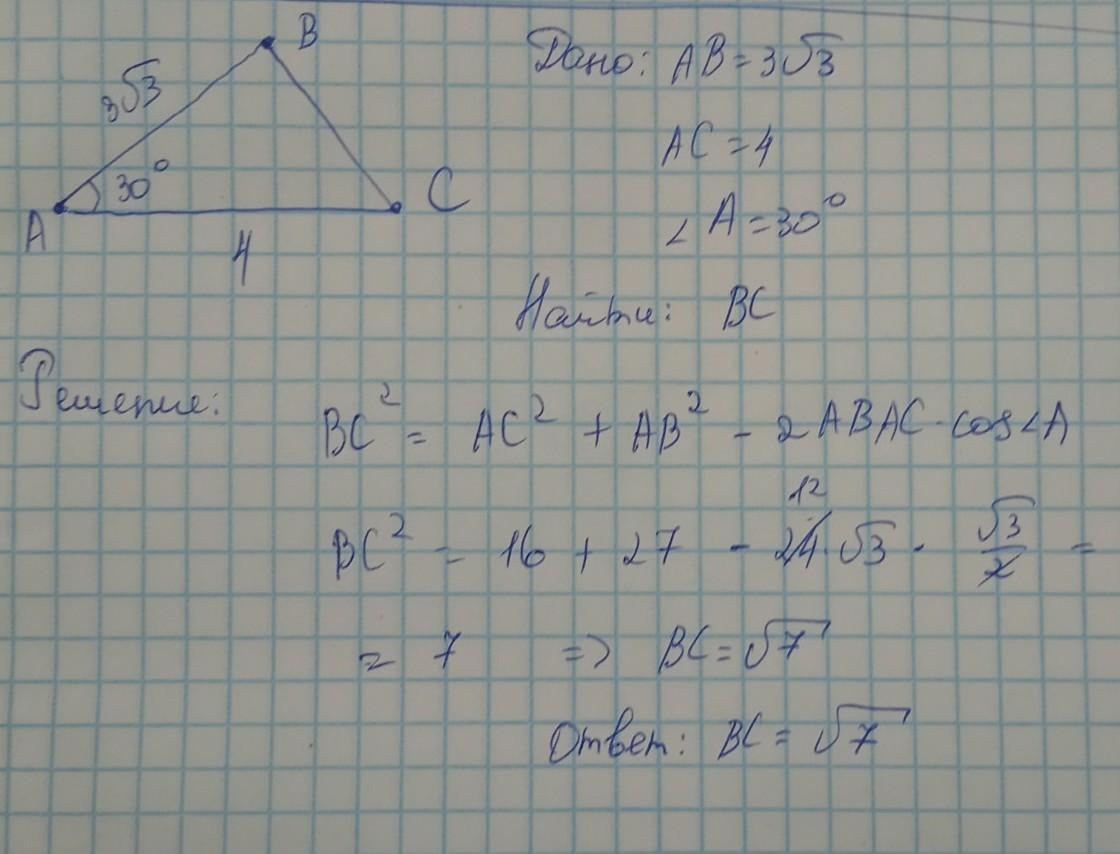 B
3√3
30°
A
C
4
Дано: AB = 3√3
AC = 4
∠ A = 30°
Найти: BC
Решение:
BC² = AC² + AB² - 2ABAC · cos∠A
12
BC² = 16 + 27 - 24 · √3 · √3/2 =
= 7 => BC = √7
Ответ: BC = √7